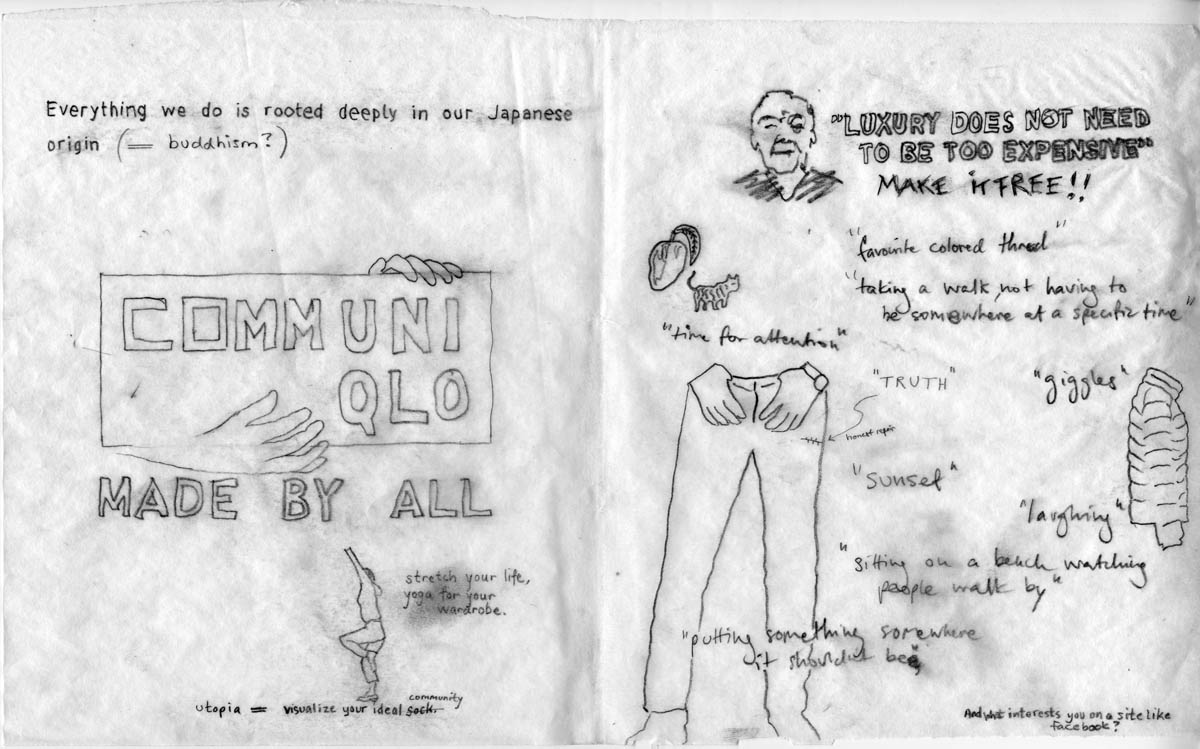 Everything we do is rooted deeply in our Japanese
origin (= buddhism?)
COMMUNI
QLO
MADE BY ALL
stretch your life,
yoga for your
wardrobe.
community
utopia = visualize your ideal sock.
"LUXURY DOES NOT NEED
TO BE TOO EXPENSIVE"
MAKE it FREE!!
"favourite colored thread"
"taking a walk, not having to
be somewhere at a specific time"
"time for attention"
"TRUTH"
"giggles"
honest repair
"sunset"
"laughing"
"sitting on a bench watching
people walk by"
"putting something somewhere
it shouldnt be"
And what interests you on a site like
facebook?